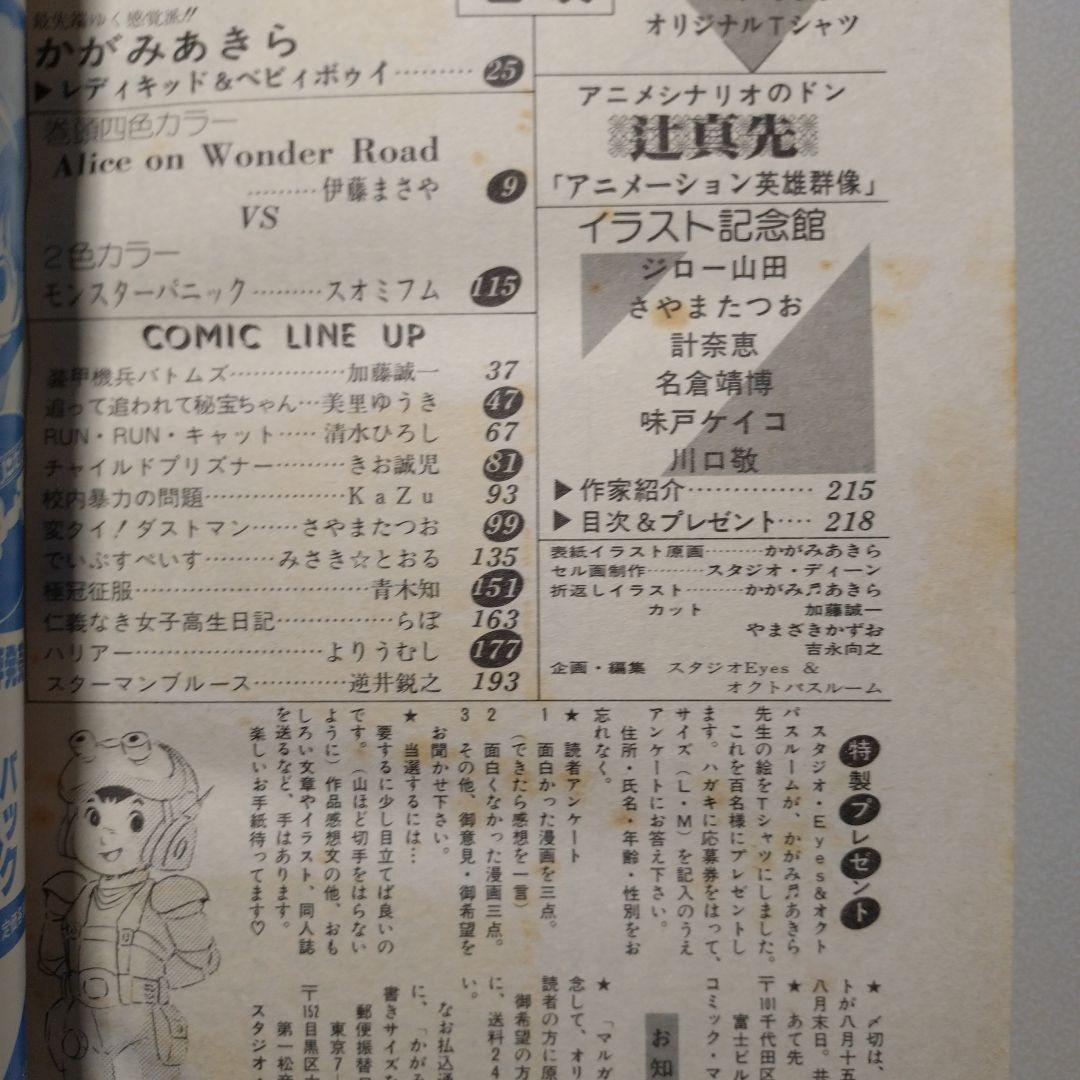 最先端ゆく感覚派!!
かがみあきら
▶レディキッド＆ベビィボゥイ………25
巻頭四色カラー
Alice on Wonder Road
………伊藤まさや 9
VS
2色カラー
モンスターパニック………スオミフム 115
COMIC LINE UP
装甲機兵バトムズ……………加藤誠一 37
追って追われて秘宝ちゃん…美里ゆうき 47
RUN・RUN・キャット……清水ひろし 67
チャイルドプリズナー…………きお誠児 81
校内暴力の問題………………KaZu 93
変タイ！ダストマン……さやまたつお 99
でいぷすぺいす………みさき☆とおる 135
極冠征服………………………青木知 151
仁義なき女子高生日記……………らぽ 163
ハリアー……………………よりうむし 177
スターマンブルース…………逆井鋭之 193
オリジナルTシャツ
アニメシナリオのドン
辻真先
「アニメーション英雄群像」
イラスト記念館
ジロー山田
さやまたつお
計奈恵
名倉靖博
味戸ケイコ
川口敬
▶作家紹介……………215
▶目次＆プレゼント……218
表紙イラスト原画………かがみあきら
セル画制作………スタジオ・ディーン
折返しイラスト………かがみ♬あきら
カット 加藤誠一
やまざきかずお
吉永向之
企画・編集 スタジオEyes ＆
オクトパスルーム
特製プレゼント
スタジオ・Eyes＆オクト
パスルームが、かがみ♬あきら
先生の絵をTシャツにしました。
これを百名様にプレゼントし
ます。ハガキに応募券をはって、
サイズ（L・M）を記入のうえ
アンケートにお答え下さい。
住所・氏名・年齢・性別をお
忘れなく。
★ 読者アンケート
1 面白かった漫画を三点。
(できたら感想を一言)
2 面白くなかった漫画三点。
3 その他、御意見・御希望を
お聞かせ下さい。
★ 当選するには…
要するに少し目立てば良いの
です。（山ほど切手をはらない
ように）作品感想文の他、おも
しろい文章やイラスト、同人誌
を送るなど、手はあります。
楽しいお手紙待ってます♡
★ 〆切は、
トが八月十五
八月末日。共
★ あて先
〒101千代田区
富士ビル
コミック・マ
お知
★ 「マルガ
念して、オリ
読者の方に原
御希望の方
に、送料24
い。
なお払込通
に、「かがみ
書きサイズを
郵便振替口
東京7—
〒152目黒区大
第一松斎
スタジオ・
バック